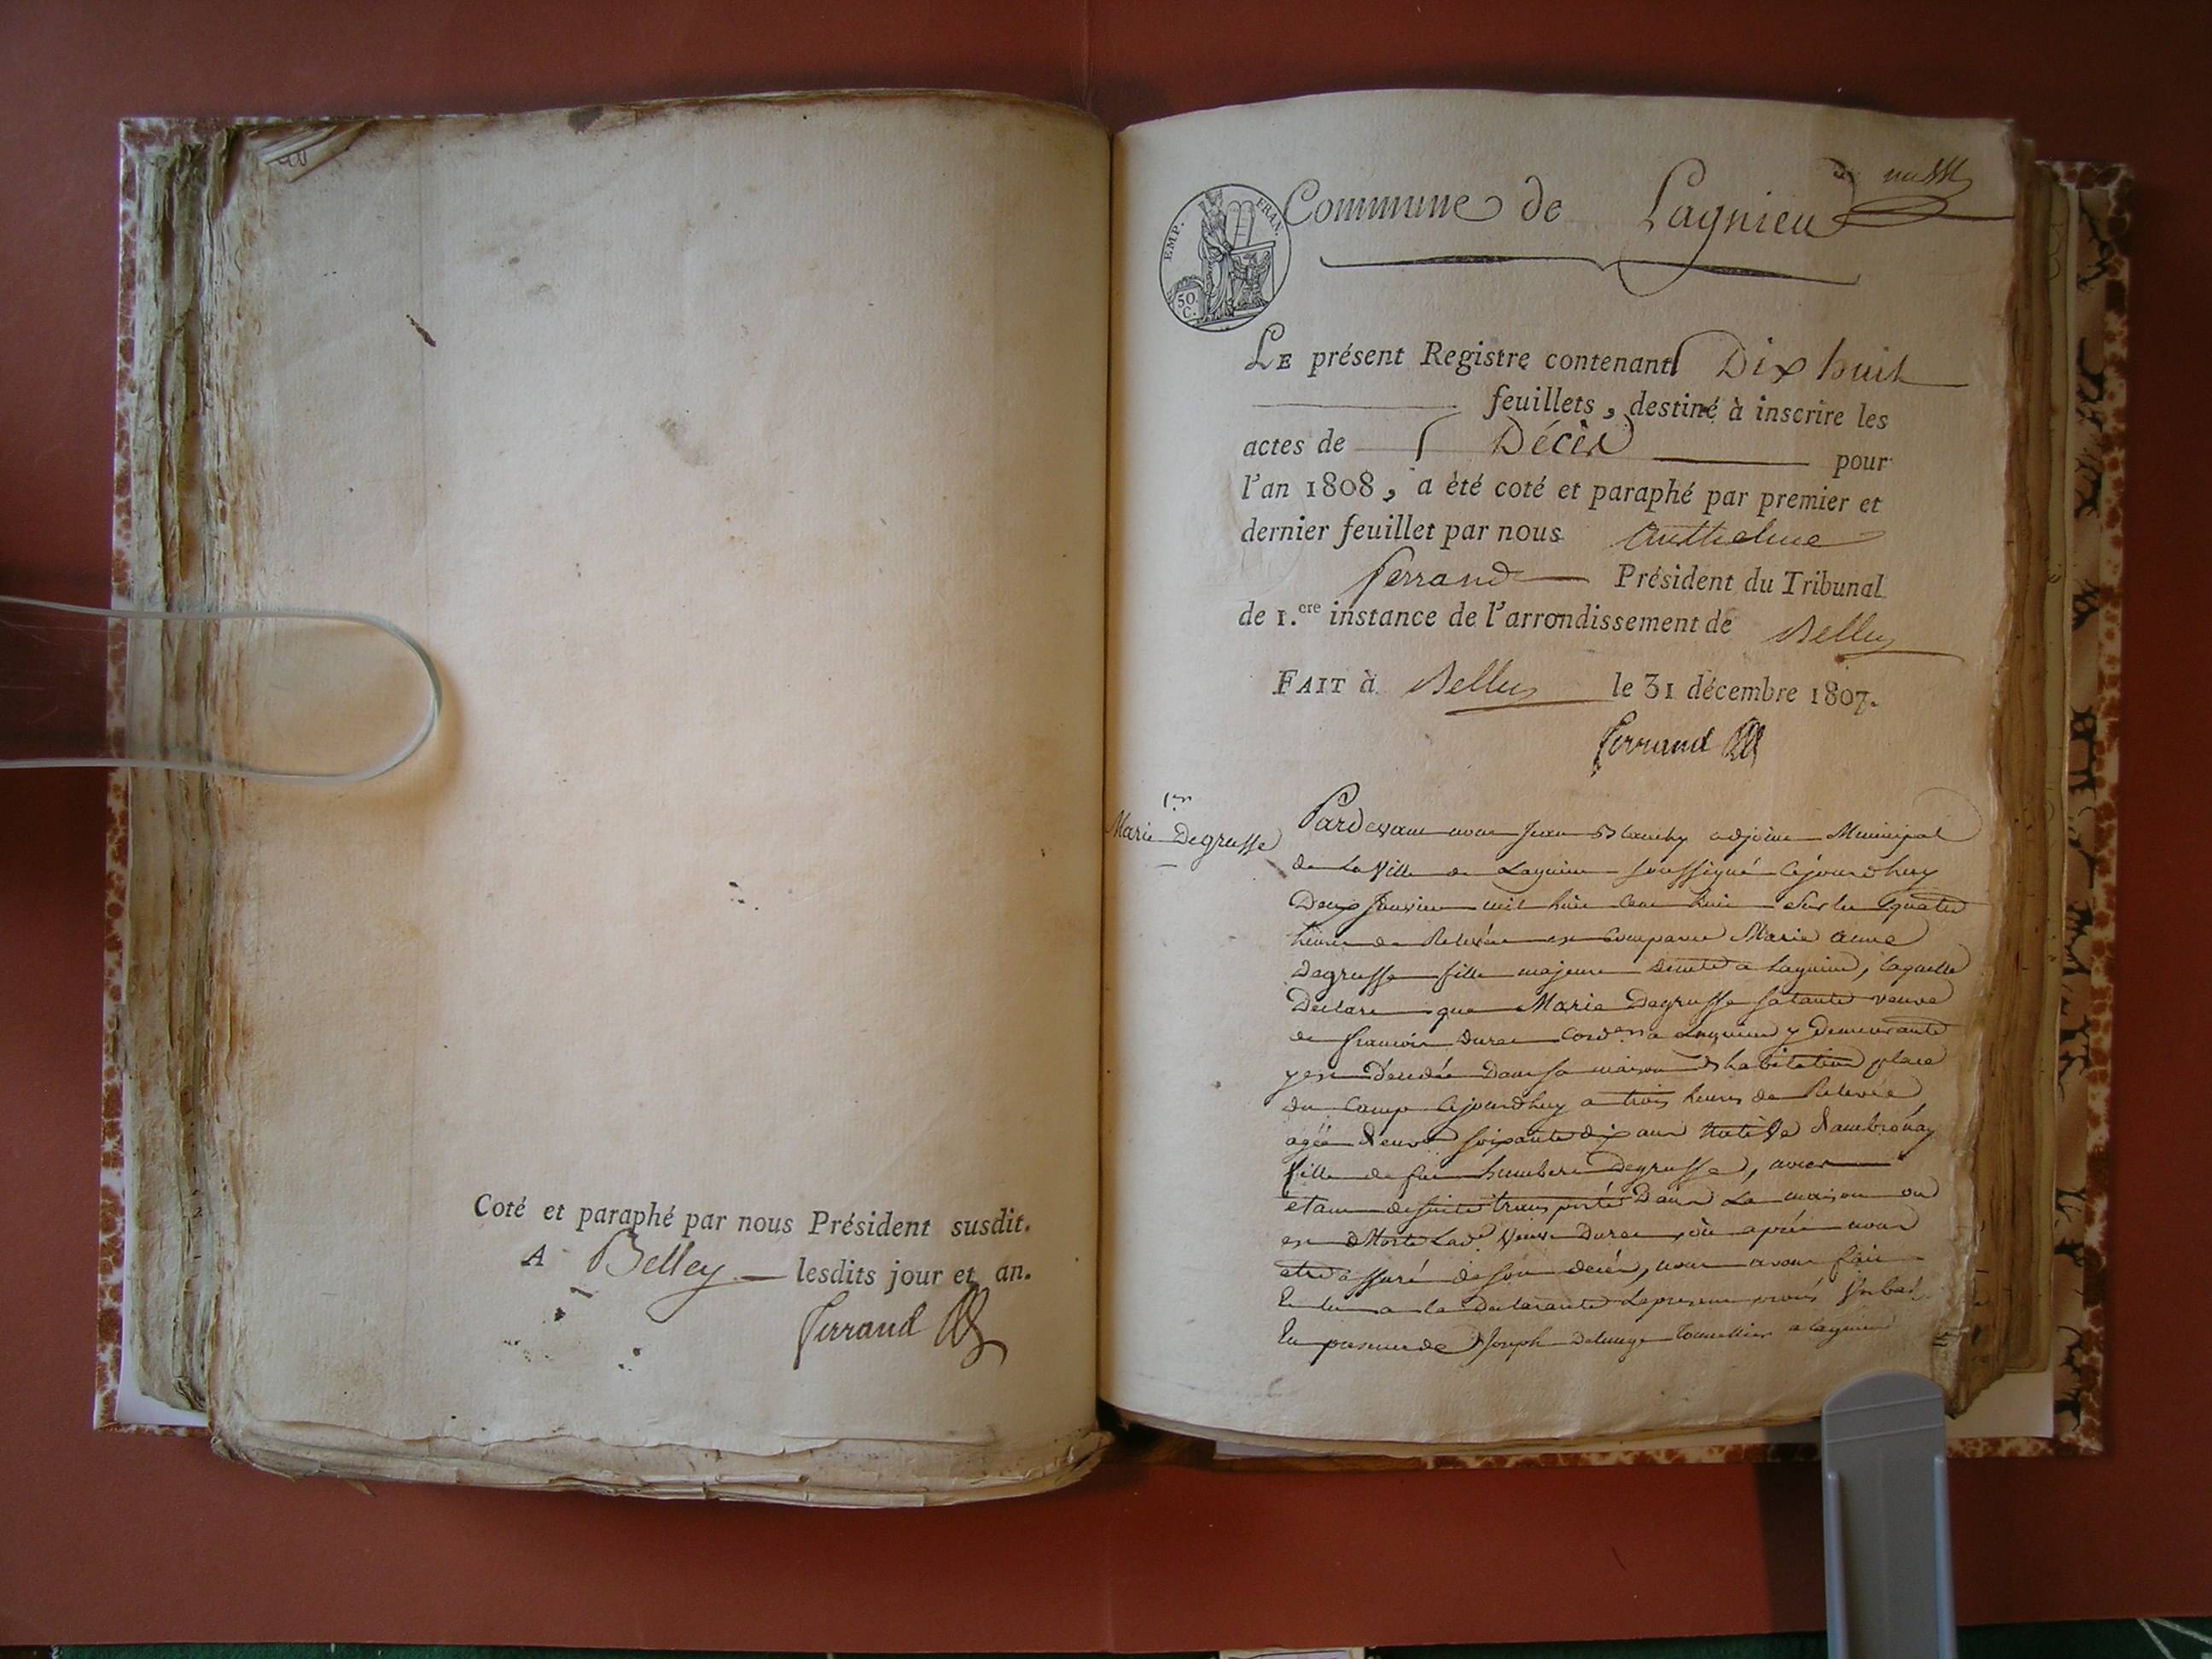 Coté et paraphé par nous Président susdit.
A Belley lesdits jour et an.
Ferrand
Commune de Lagnieu
EMP. FRAN.
50 C.
LE présent Registre contenant Dix huit
feuillets, destiné à inscrire les
actes de Décès pour
l'an 1808, a été coté et paraphé par premier et
dernier feuillet par nous Anthelme
Ferrand Président du Tribunal
de 1.ere instance de l'arrondissement de Belley
FAIT à Belley le 31 décembre 1807.
Ferrand
1er
Marie Degrusse
Pardevant nous Jean adjoint Municipal
de la Ville de Lagnieu soussigné Cejourdhuy
Deux Janvier mil huit cent huit Sur les quatre
heures de Relevée est Comparue Marie anne
Degrusse fille majeure a Lagnieu, laquelle
Declare que Marie Degrusse sa tante veuve
de francois Duree Cordier a Lagnieu y Demeurante
y est Décédée Dans sa maison Dhabitation place
du Camp Cejourdhuy a trois heures de Relevée
agée Denv. soixante dix ans Native Dambronay
fille de feu humbert Degrusse, nous
etant de suite transporté Dans La maison ou
est Morte Lad.e Veuve Duree, où après nous
etre assuré de son decès, nous avons fait
Et lu a la Declarante Le present
En presence de Joseph Tonnellier a Lagnieu